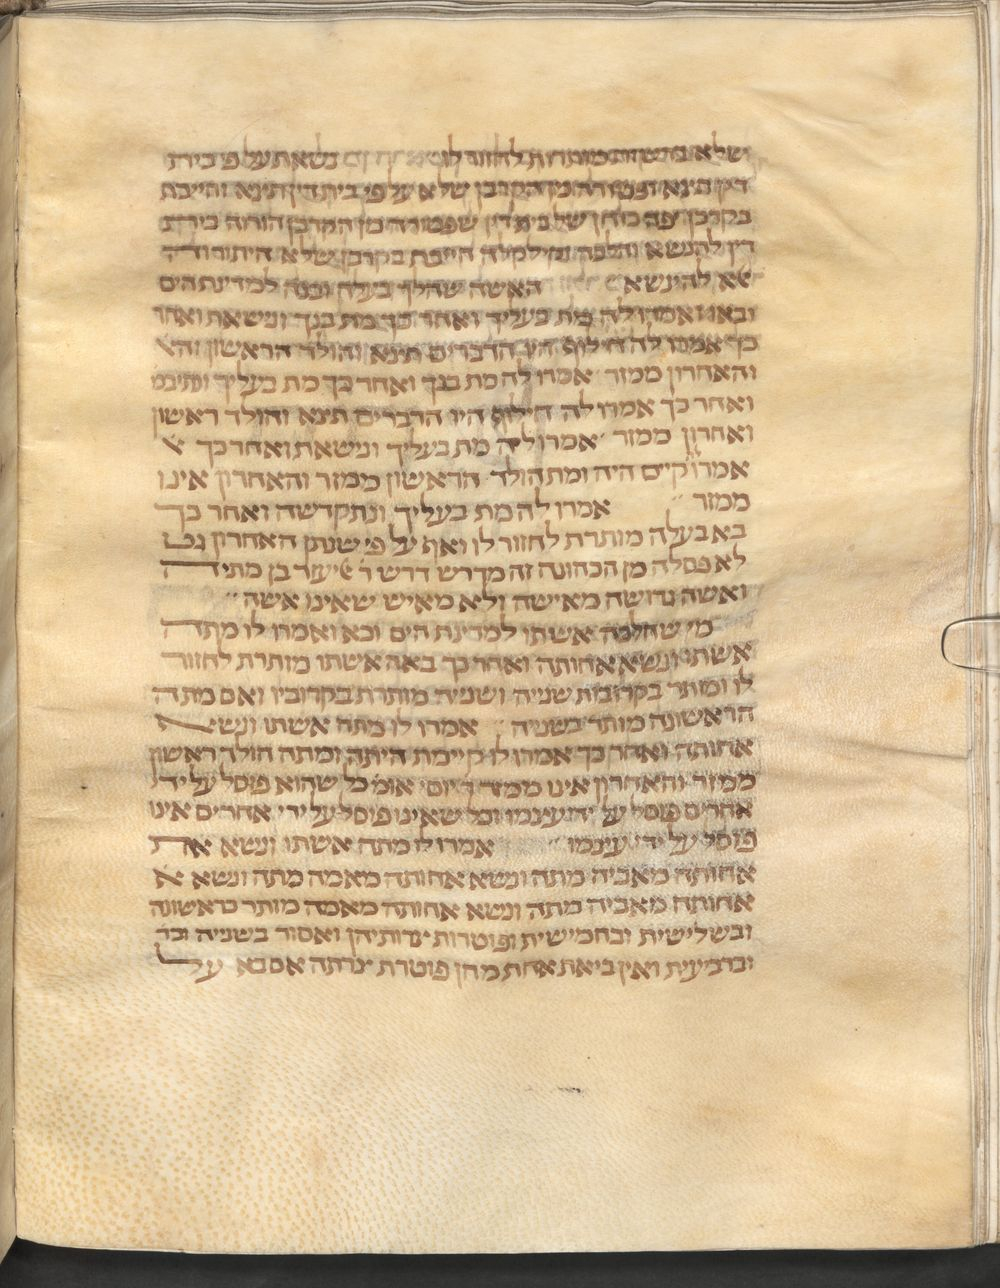 שלא ברשות מותרת לחזור לו נשאת על פי בית
דין תינשא ופטורה מן הקרבן שלא על פי בית דין תינשא וחייבת
בקרבן יפה כוחן של בית דין שפטורה מן הקרבן הורוה בית
דין להנשא והלכה וקילקלה חייבת בקרבן שלא היתירוה
אלא להינשא האשה שהלך בעלה ובנה למדינת הים
ובאו ואמרו לה מת בעליך ואחר כך מת בנך ונישאת ואחר
כך אמרו לה חילוף היו הדברים תינשא והולד הראשון
והאחרון ממזר אמרו לה מת בנך ואחר כך מת בעליך
ואחר כך אמרו לה חילוף היו הדברים תינשא והולד ראשון
ואחרון ממזר אמרו ליה מת בעליך ונישאת ואחר כך
אמרו קיים היה ומת הולד הראשון ממזר והאחרון אינו
ממזר אמרו לה מת בעליך ונתקדשה ואחר כך
בא בעלה מותרת לחזור לו ואף על פי שנתן האחרון גט
לא פסלה מן הכהונה זה מדרש דרש ר׳ אליעזר בן מתיה
ואשה גרושה מאישה ולא מאיש שאינו אשה
מי שהלכה אשתו למדינת הים ובאו ואמרו לו מתה
אשתו ונשא אחותה ואחר כך באה אשתו מותרת לחזור
לו ומותר בקרובות שניה ושניה מותרת בקרוביו ואם מתה
הראשונה מותר בשניה אמרו לו מתה אשתו ונשא
אחותה ואחר כך אמרו לו קיימת היתה ומתה הולד ראשון
ממזר והאחרון אינו ממזר ר׳ יוסי אומ׳ כל שהוא פוסל על ידי
אחרים פוסל על ידי עצמו וכל שאינו פוסל על ידי אחרים אינו
פוסל על ידי עצמו אמרו לו מתה אשתו ונשא את
אחותה מאביה מתה ונשא אחותה מאמה מתה ונשא
אחותה מאביה מתה ונשא אחותה מאמה מותר בראשונה
ובשלישית ובחמישית ופוטרות צרותיהן ואסור בשניה
וברביעית ואין ביאת אחת מהן פוטרת צרתה אם בא על